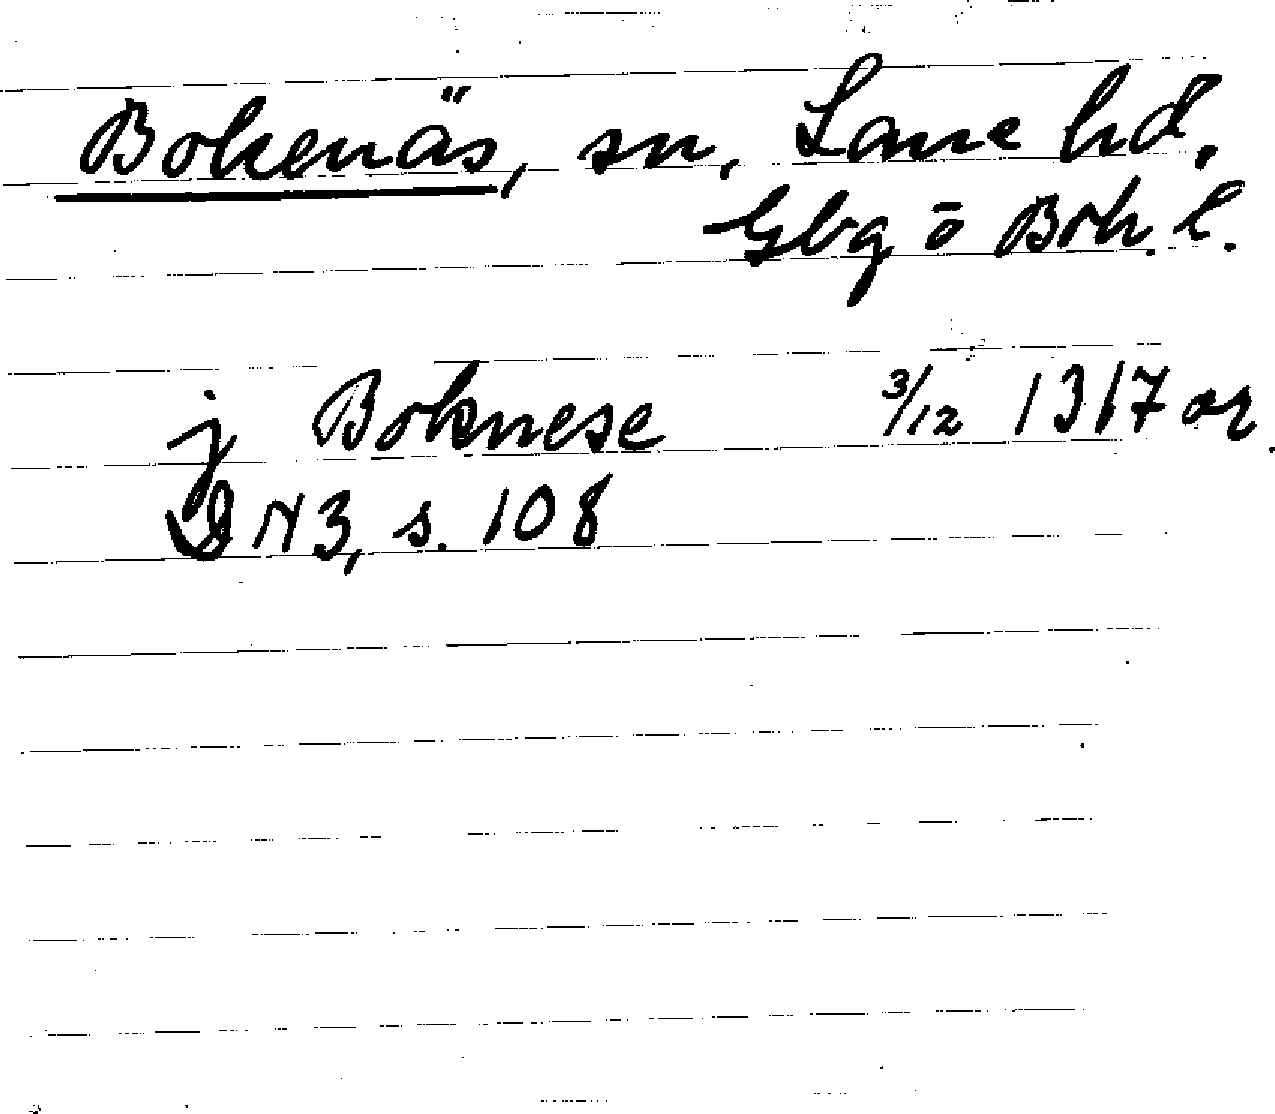 Bokenäs, sn, Lane hd,
Gbg ō Boh. l.
j Boknese 3/12 1317 or.
DN3, s. 108